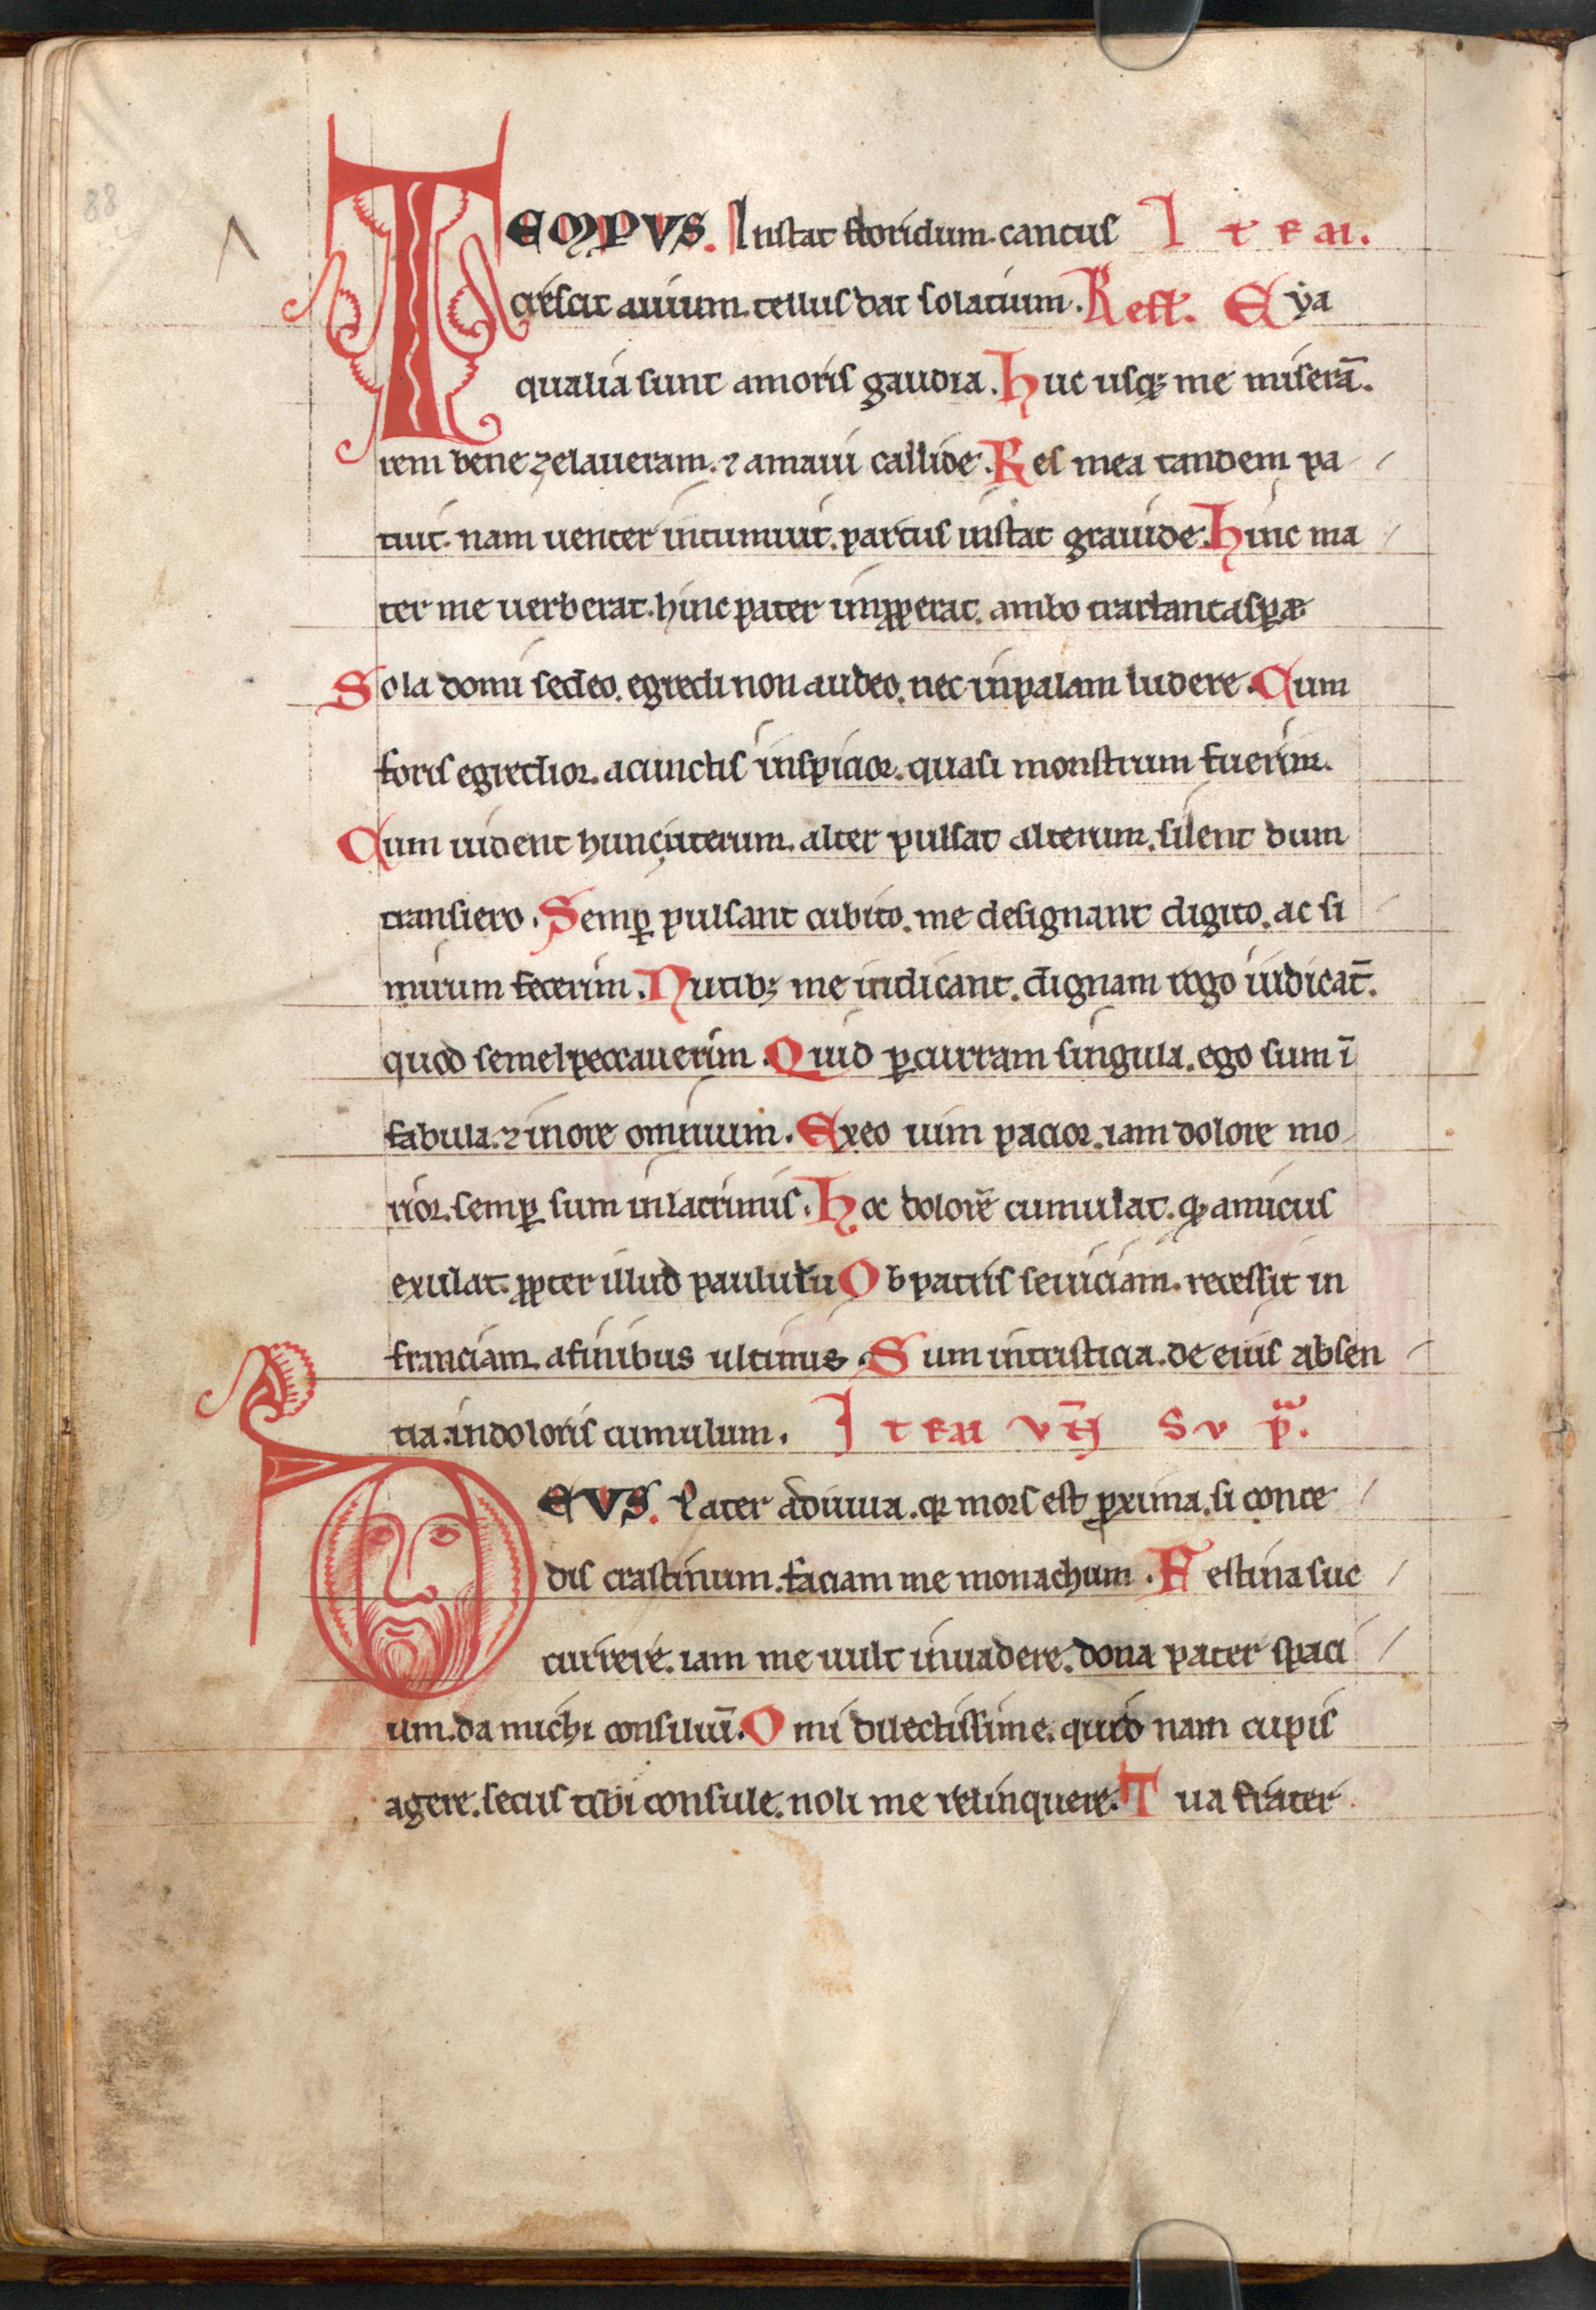 88
TEMPVS. Instat floridum. cantus Item.
crescit auium. tellus dat solatium. Reff. Eya
qualia sunt amoris gaudia. Huc usq; me miserā.
rem bene zelaueram. ⁊ amaui callide. Res mea tandem pa
tuit. nam uenter intumuit. partus instat grauide. Hinc ma
ter me uerberat. hinc pater inꝓperat. ambo tractant aspere
Sola domi sedeo. egredi non audeo. nec inpalam ludere. Cum
foris egredior. acunctis inspicior. quasi monstrum fuerim.
Cum uident hunc uterum. alter pulsat alterum. silent dum
transiero. Semꝑ pulsant cubito. me designant digito. ac si
mirum fecerim. Nutib; me indicant. dignam rogo iudicāt.
quod semel peccauerim. Quid ꝑcurram singula. ego sum ī
fabula. ⁊ inore omnium. Exeo uim pacior. iam dolore mo
rior. semꝑ sum inlacrimis. Hoc dolorē cumulat. qđ amicus
exulat. ꝓpter illud paululū Ob patris seuiciam. recessit in
franciam. afinibus ultimis. Sum intristicia. de eius absen
tia. indoloris cumulum. Item vn̄ Su pᵃ.
DEVS. Pater adiuua. qꝛ mors est ꝓxima. si conce
dis crastinum. faciam me monachum. Festina suc
currere. iam me uult inuadere. dona pater spaci
um. da michi consiliū. O mi dilectissime. quid nam cupis
agere. secus tibi consule. noli me relinquere. Tua frater